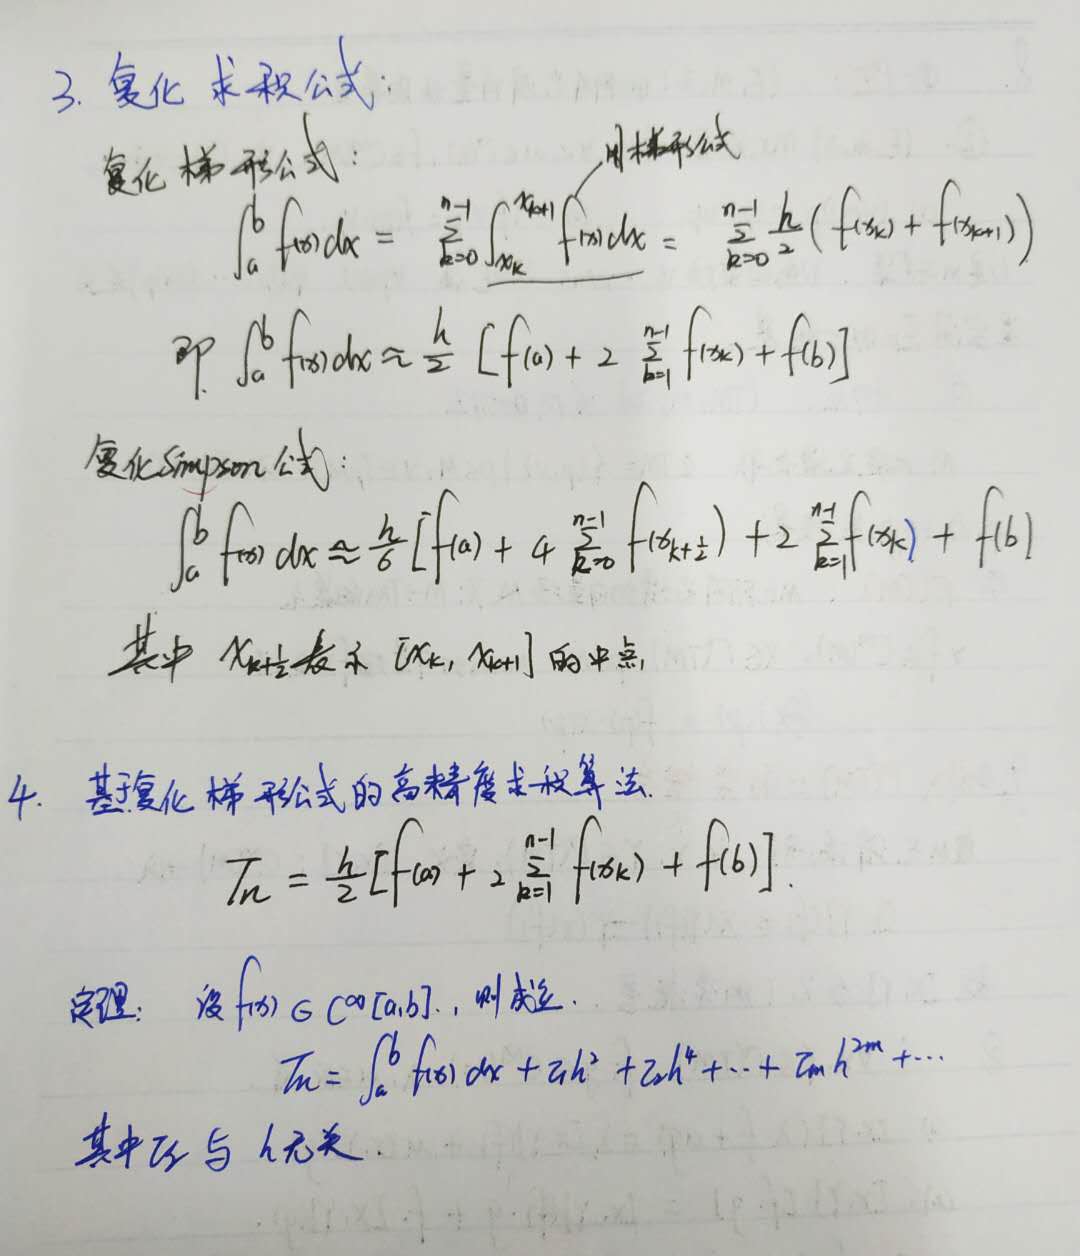 3. 复化求积公式:
复化梯形公式: 用梯形公式
∫_a^b f(x)dx = Σ_{k=0}^{n-1} ∫_{x_k}^{x_{k+1}} f(x)dx = Σ_{k=0}^{n-1} h/2 (f(x_k) + f(x_{k+1}))
即 ∫_a^b f(x)dx ≈ h/2 [f(a) + 2 Σ_{k=1}^{n-1} f(x_k) + f(b)]
复化Simpson公式:
∫_a^b f(x) dx ≈ h/6 [f(a) + 4 Σ_{k=0}^{n-1} f(x_{k+1/2}) + 2 Σ_{k=1}^{n-1} f(x_k) + f(b)]
其中 x_{k+1/2} 表示 [x_k, x_{k+1}] 的中点
4. 基于复化梯形公式的高精度求积算法.
T_n = h/2 [f(a) + 2 Σ_{k=1}^{n-1} f(x_k) + f(b)].
定理: 设 f(x) ∈ C^∞[a,b]., 则成立.
T_n = ∫_a^b f(x) dx + τ_1h^2 + τ_2h^4 + ⋯ + τ_m h^{2m} + ⋯
其中 τ_j 与 h 无关.